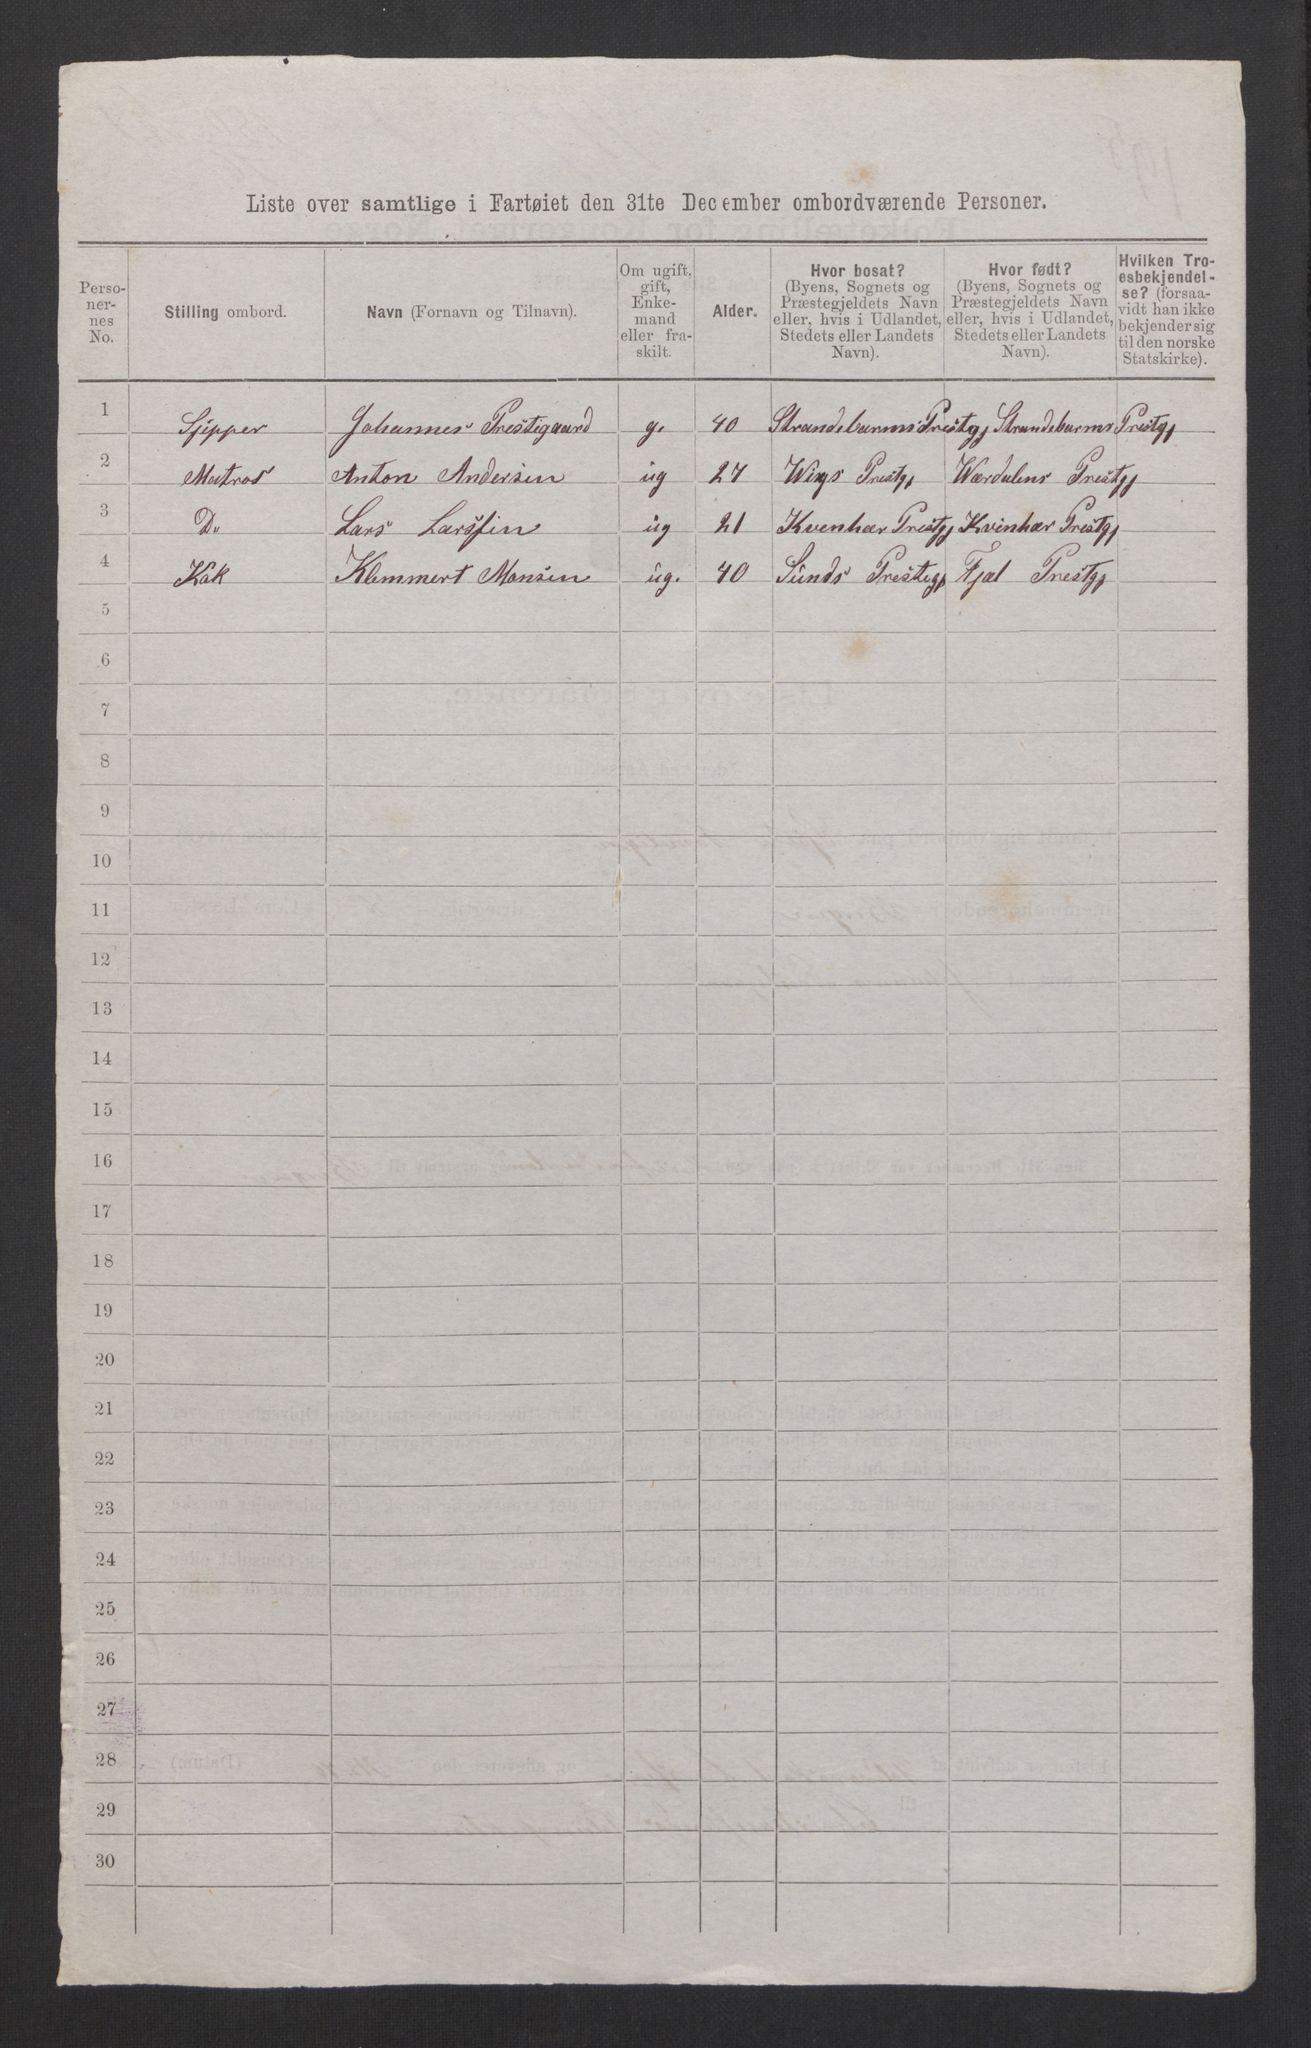 Liste over samtlige i Fartøiet den 31te December ombordværende Personer.
Perso-
ner-
nes
No.
Stilling ombord.
Navn (Fornavn og Tilnavn).
Om ugift,
gift,
Enke-
mand
eller fra-
skilt.
Alder.
Hvor bosat?
(Byens, Sognets og
Præstegjeldets Navn
eller, hvis i Udlandet,
Stedets eller Landets
Navn).
Hvor født?
(Byens, Sognets og
Præstegjeldets Navn
eller, hvis i Udlandet,
Stedets eller Landets
Navn).
Hvilken Tro-
esbekjendel-
se? (forsaa-
vidt han ikke
bekjender sig
til den norske
Statskirke).
1 Sjipper Johannes Prestegaard g. 40 Strandebarms Prestgj Strandebarms Prestgj
2 Matros Anton Andersen ug 27 Prestgj Værdalens Prestgj
3 Do Lars Larssen ug 21 Kvenhær Prestgj Kvinhær Prestgj
4 Kok Klemmert Monsen ug. 40 Sunds Prestegj Fjæl Prestgj
5
6
7
8
9
10
11
12
13
14
15
16
17
18
19
20
21
22
23
24
25
26
27
28
29
30